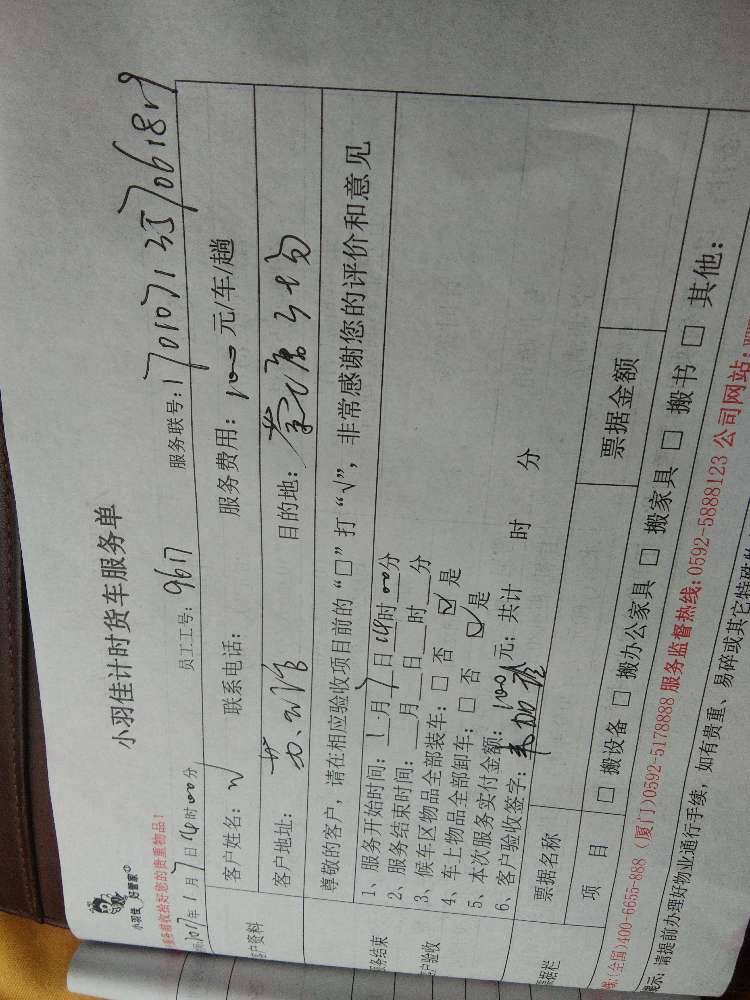 小羽佳
好管家
小羽佳计时货车服务单
2017年1月7日14时00分
员工工号：9617
服务联号：
客户资料
客户姓名：
联系电话：
服务费用：100元/车/趟
客户地址：
目的地：
尊敬的客户，请在相应验收项目前的“□”打“√”，非常感谢您的评价和意见
服务结束
客户验收
1、服务开始时间：1月7日14时00分
2、服务结束时间：___月___日___时___分
3、候车区物品全部装车：□ 否 ☑ 是
4、车上物品全部卸车：□ 否 ☑ 是
5、本次服务实付金额：100元；共计 时 分
6、客户验收签字：
票据栏
票据名称
票据金额
项 目
□ 搬设备 □ 搬办公家具 □ 搬家具 □ 搬书 □ 其他：
(全国)400-6655-888 (厦门)0592-5178888 服务监督热线：0592-5888123 公司网站：
提示：请提前办理好物业通行手续，如有贵重、易碎或其它特殊